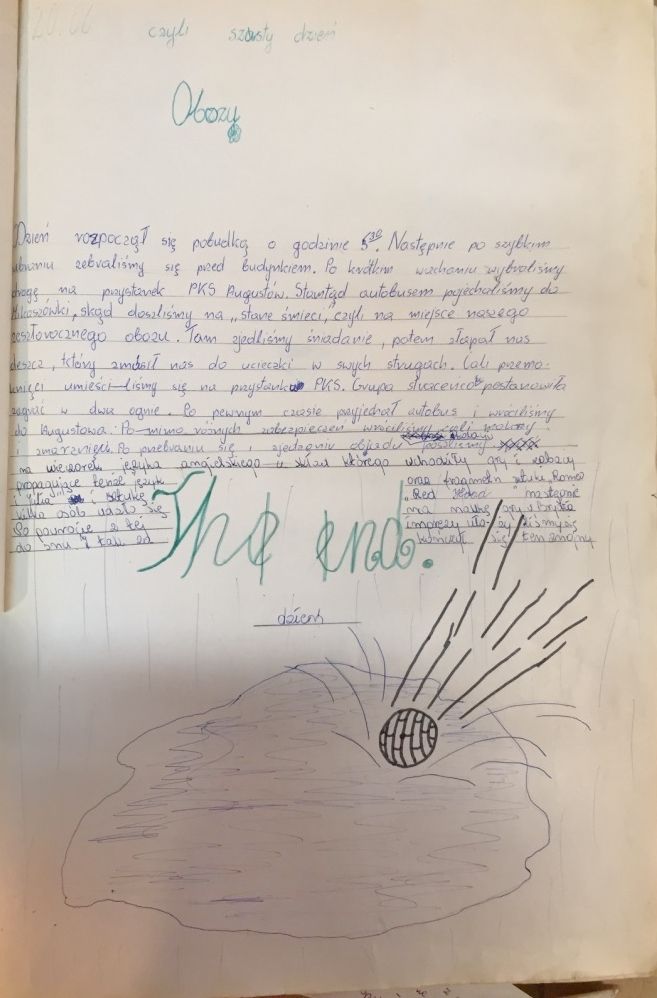 czyli szósty dzień
Obozu
Dzień rozpoczął się pobudką o godzinie 5³⁰. Następnie po szybkim
ubraniu zebraliśmy się przed budynkiem. Po krótkim wachaniu wybraliśmy
drogę na przystanek PKS Augustów. Stamtąd autobusem pojechaliśmy do
skąd doszliśmy na „stare śmieci", czyli na miejsce naszego
zeszłorocznego obozu. Tam zjedliśmy śniadanie, potem złapał nas
deszcz, który zmusił nas do ucieczki w swych strugach. Cali przemo-
knięci umieściliśmy się na przystanku PKS. Grupa straceńców postanowiła
zagrać w dwa ognie. Po pewnym czasie przyjechał autobus i wróciliśmy
do Augustowa. Po mimo różnych zabezpieczeń wróciliśmy cali
i zmarznięci. Po przebraniu się i zjedzeniu objadu poszliśmy
na wieczorek języka angielskiego w skład którego wchodziły gry i zabawy
propagujące tenże język oraz fragment sztuki „Romeo
i Julia" i sztukę „Red następnie
kilka osób udało się na małe
Po powrocie z tej imprezy
do snu i tak oto kończył się ten znojny
The end.
dzień